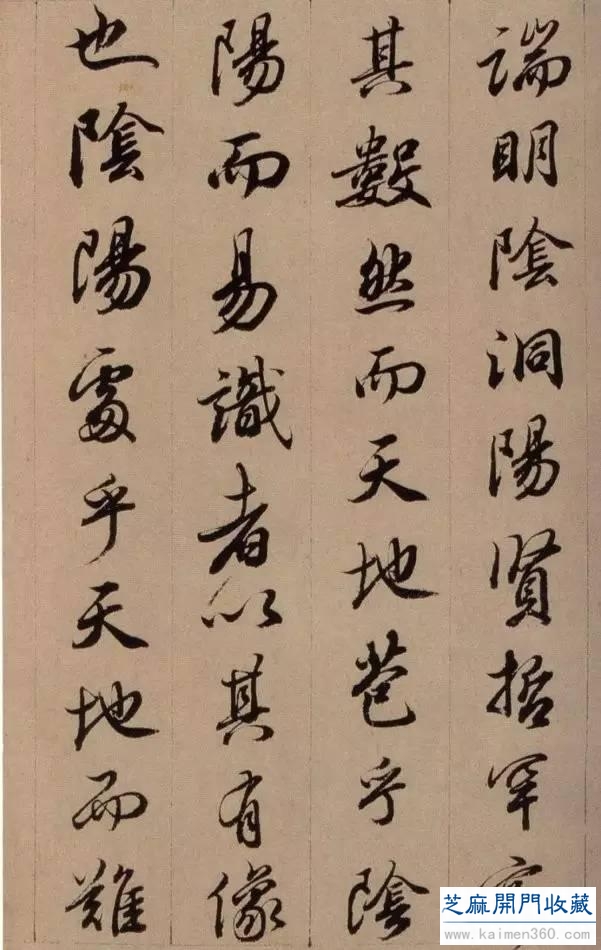 端明陰洞陽賢哲罕
其數然而天地苞乎陰
陽而易識者以其有像
也陰陽處乎天地而難
芝麻開門收藏
www.kaimen360.com